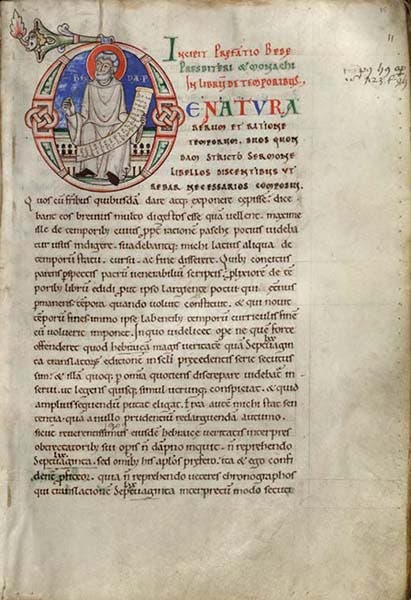 INCIPIT PREFATIO BEDE
PRESBITERI & MONACHI
IN LIBRUM DE TEMPORIBUS.
BEDA P
DE NATURA
RERUM ET RATIONE
TEMPORUM, DUOS QUON
DAM STRICTO SERMONE
LIBELLOS DISCENTIBUS UT
REBAR NECESSARIOS COMPOSUI.
Quos cū fribus quibusdā dare atq; exponere cepissē. dice
bant eos brevius multo digestos esse quā vellent. maxime
illū de temporib; cuius ratione pasche pocius videba
tur usus indigere. suadebantq; michi lacius aliqua de
temporū statu. cursu. ac fine disserere. Quib;
parens perspectis patrū venerabiliū scriptis. de tē
porib; librū edidi. put ipso largiente potui. qui
pmanens tēpora quando voluit constituit. & qui novit
tēporū fines. immo ipse labentib; tēporū curriculis finē
cū voluerit imponet. In quo videlicet ope ne quē forte
offenderet quod hebraicā magis veritatē quā septuaginta
translatorū editionē in scli precedentis serie secutus
sum. & illā quoq; p omnia quotiens discrepare videbatur in
serui. ut legens quisq; simul utrunq; conspiciat. & quod
amplius sequendū putat eligat. autē michi stat sen
tencia quā a nullo prudenciū redarguendā autumo.
sicut reverentissimus eiusdē hebraice veritatis interpres
obtrectatorib; sui opis n̄ dāpno inquit. n̄ reprehendo
septuaginta. sed omib; his aplos prefero. ita & ego confi
denter pfiteor. quia n̄ reprehendo veteres chronographos
qui translacionē septuaginta interpretū modo secuti